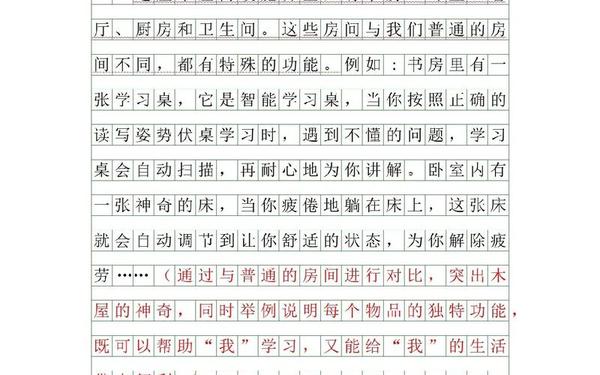 厅、厨房和卫生间。这些房间与我们普通的房
间不同，都有特殊的功能。例如：书房里有一
张学习桌，它是智能学习桌，当你按照正确的
读写姿势伏桌学习时，遇到不懂的问题，学习
桌会自动扫描，再耐心地为你讲解。卧室内有
一张神奇的床，当你疲倦地躺在床上，这张床
就会自动调节到让你舒适的状态，为你解除疲
劳……（通过与普通的房间进行对比，突出木
屋的神奇，同时举例说明每个物品的独特功能，
既可以帮助“我”学习，又能给“我”的生活